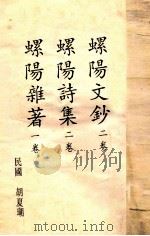 螺陽文鈔 二卷
螺陽詩集 二卷
螺陽雜著 一卷
民國 胡夏